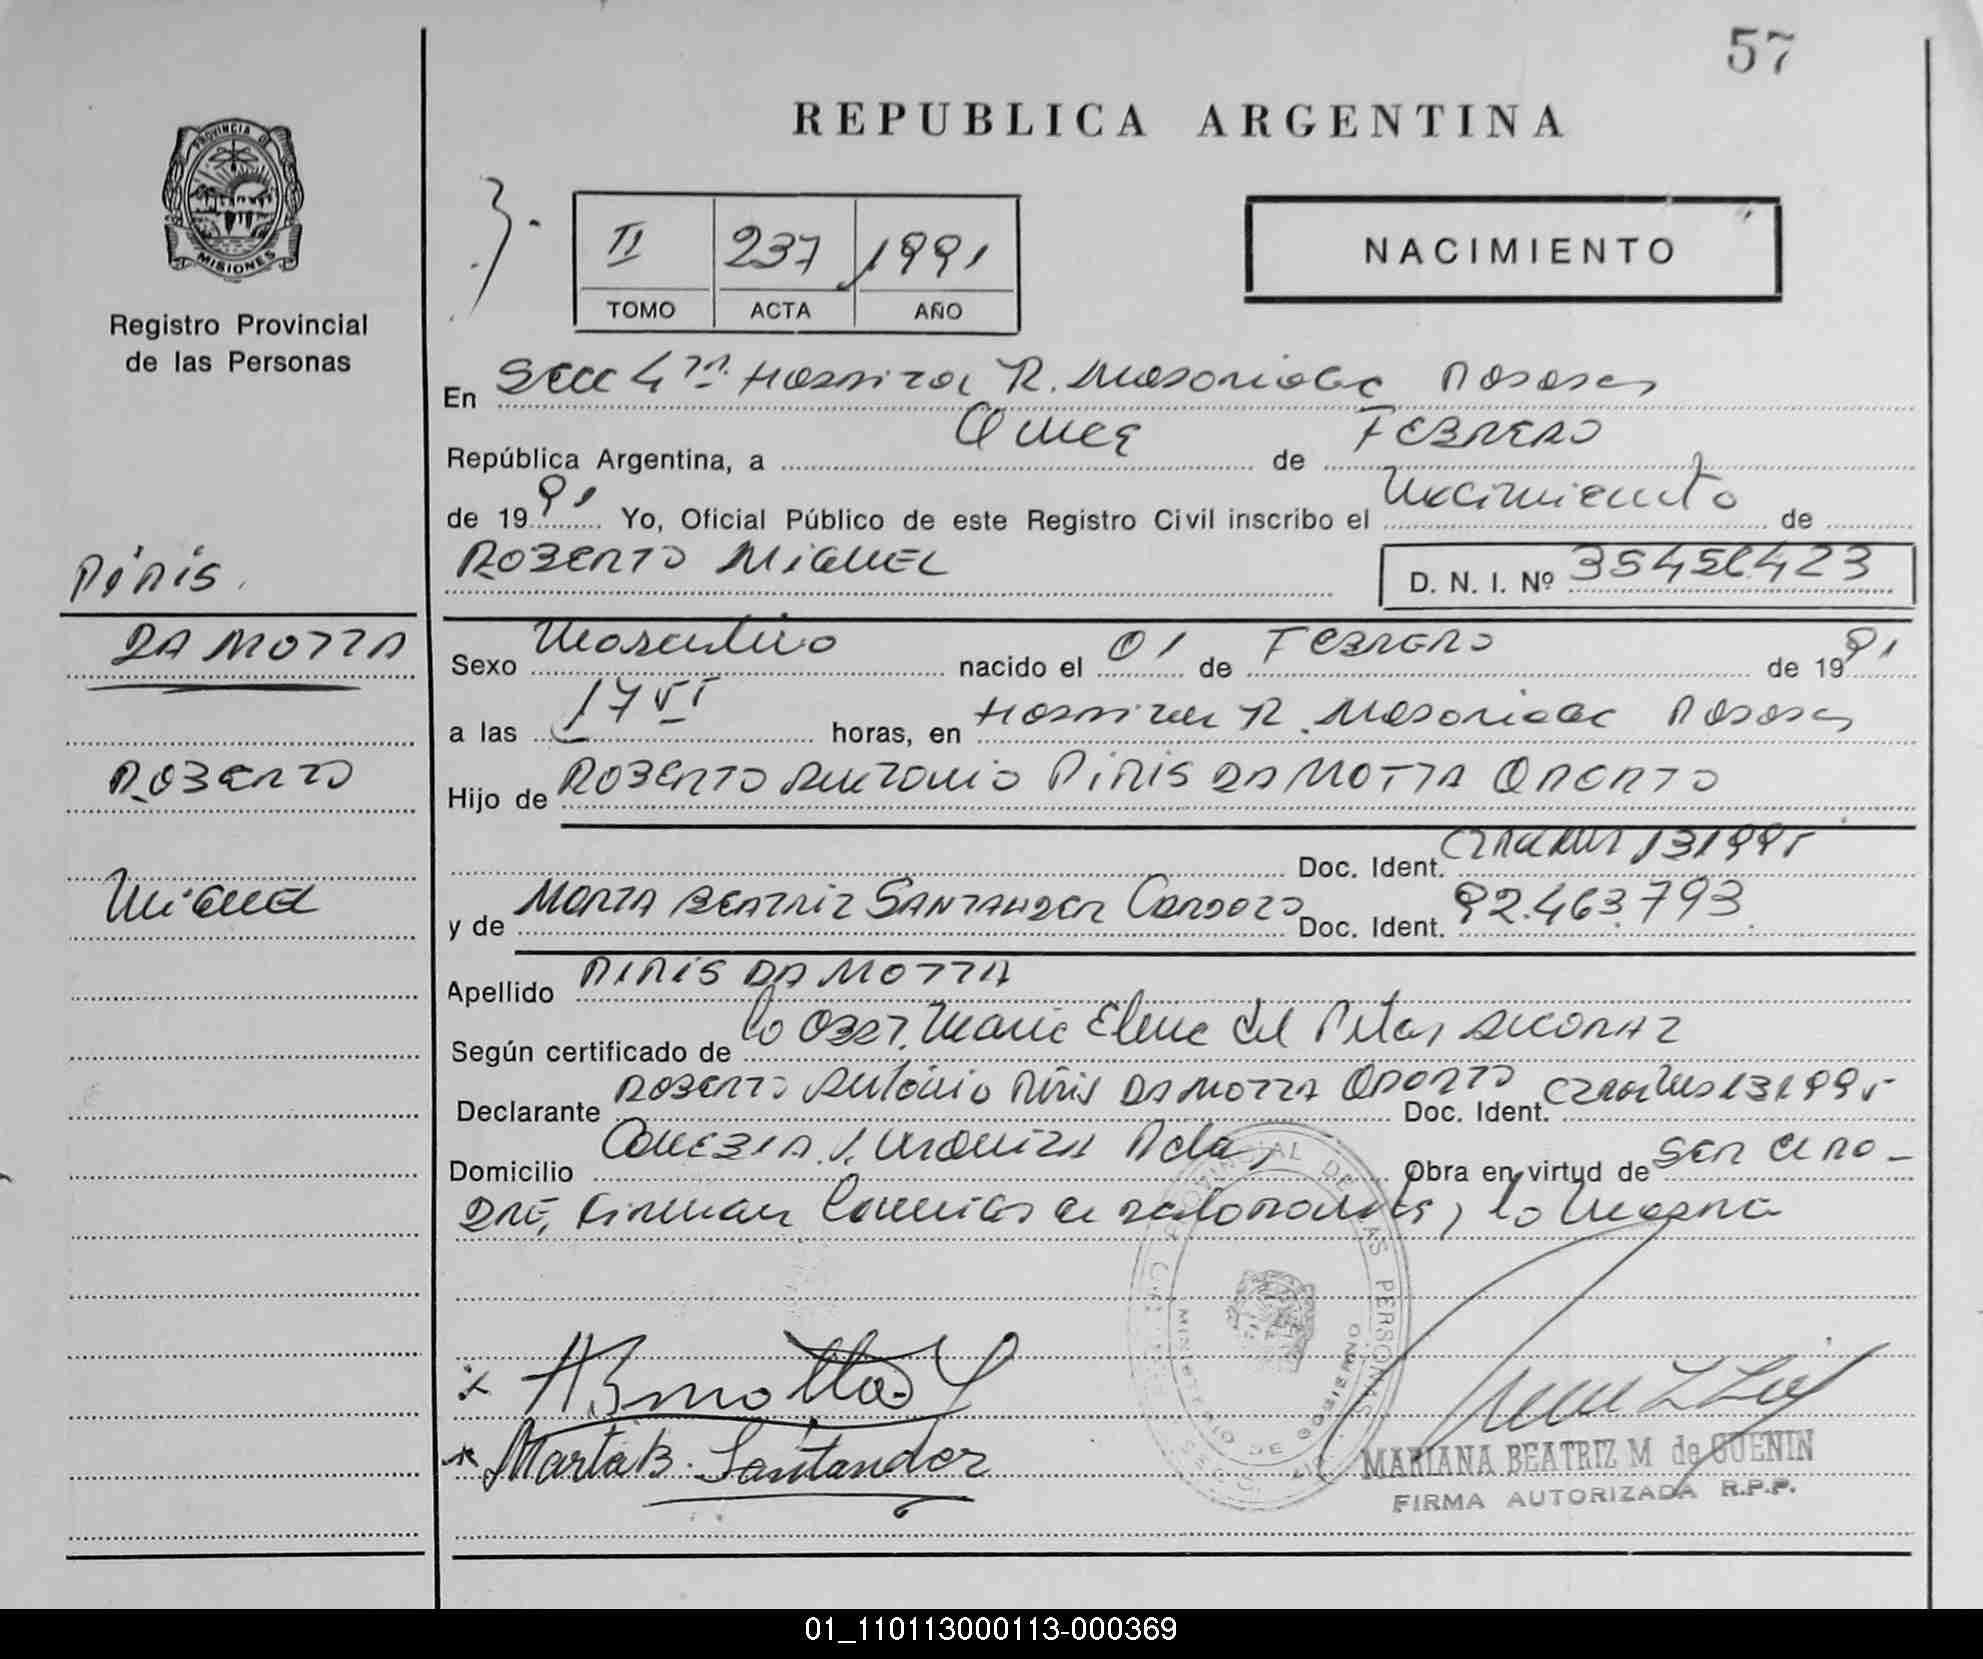 57
REPUBLICA ARGENTINA
PROVINCIA DE
MISIONES
Registro Provincial
de las Personas
II 237 1991
TOMO ACTA AÑO
NACIMIENTO
En Secc 4ta. Hospital R. Madariaga Posadas
República Argentina, a Once de FEBRERO
de 1991 Yo, Oficial Público de este Registro Civil inscribo el Nacimiento de
ROBERTO MIGUEL D. N. I. Nº
PIRIS
DA MOTTA
ROBERTO
Miguel
Sexo Masculino nacido el 01 de FEBRERO de 1991
a las 17 horas, en Hospital R. Madariaga Posadas
Hijo de ROBERTO ANTONIO PIRIS DA MOTTA OPORTO
Doc. Ident. 131995
y de MARTA BEATRIZ SANTANDER CARDOZO Doc. Ident. 92.463.793
Apellido PIRIS DA MOTTA
Según certificado de la OBST. Maria Elena del Pilar
Declarante ROBERTO Antonio Piris DA MOTTA OPORTO Doc. Ident. 131995
Domicilio Obra en virtud de SER el PA-
DRE, Firman la Madre
REGISTRO PROVINCIAL DE LAS PERSONAS
MINISTERIO DE GOBIERNO
MISIONES
Marta B. Santander
MARIANA BEATRIZ M de GUENIN
FIRMA AUTORIZADA R.P.P.
01_110113000113-000369